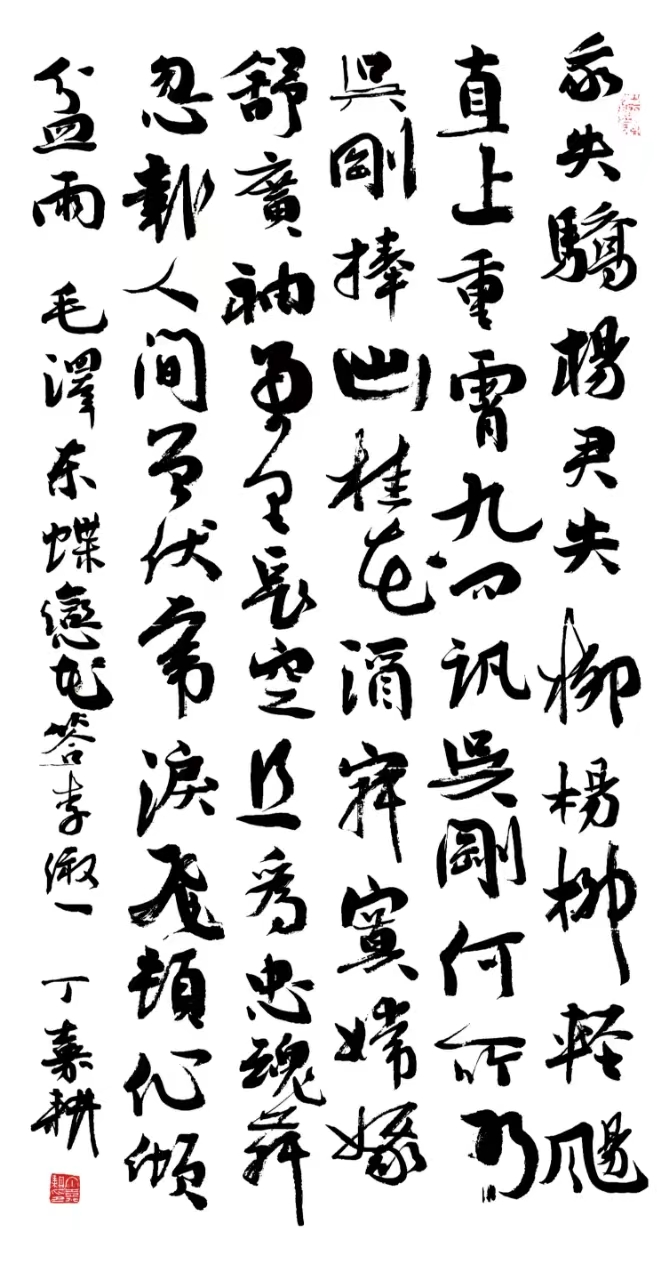 我失驕楊君失柳楊柳輕颺
直上重霄九問訊吳剛何所有
吳剛捧出桂花酒寂寞嫦娥
舒廣袖萬里長空且爲忠魂舞
忽報人間曾伏虎淚飛頓作傾
盆雨 毛澤東蝶戀花答李淑一 丁嘉耕